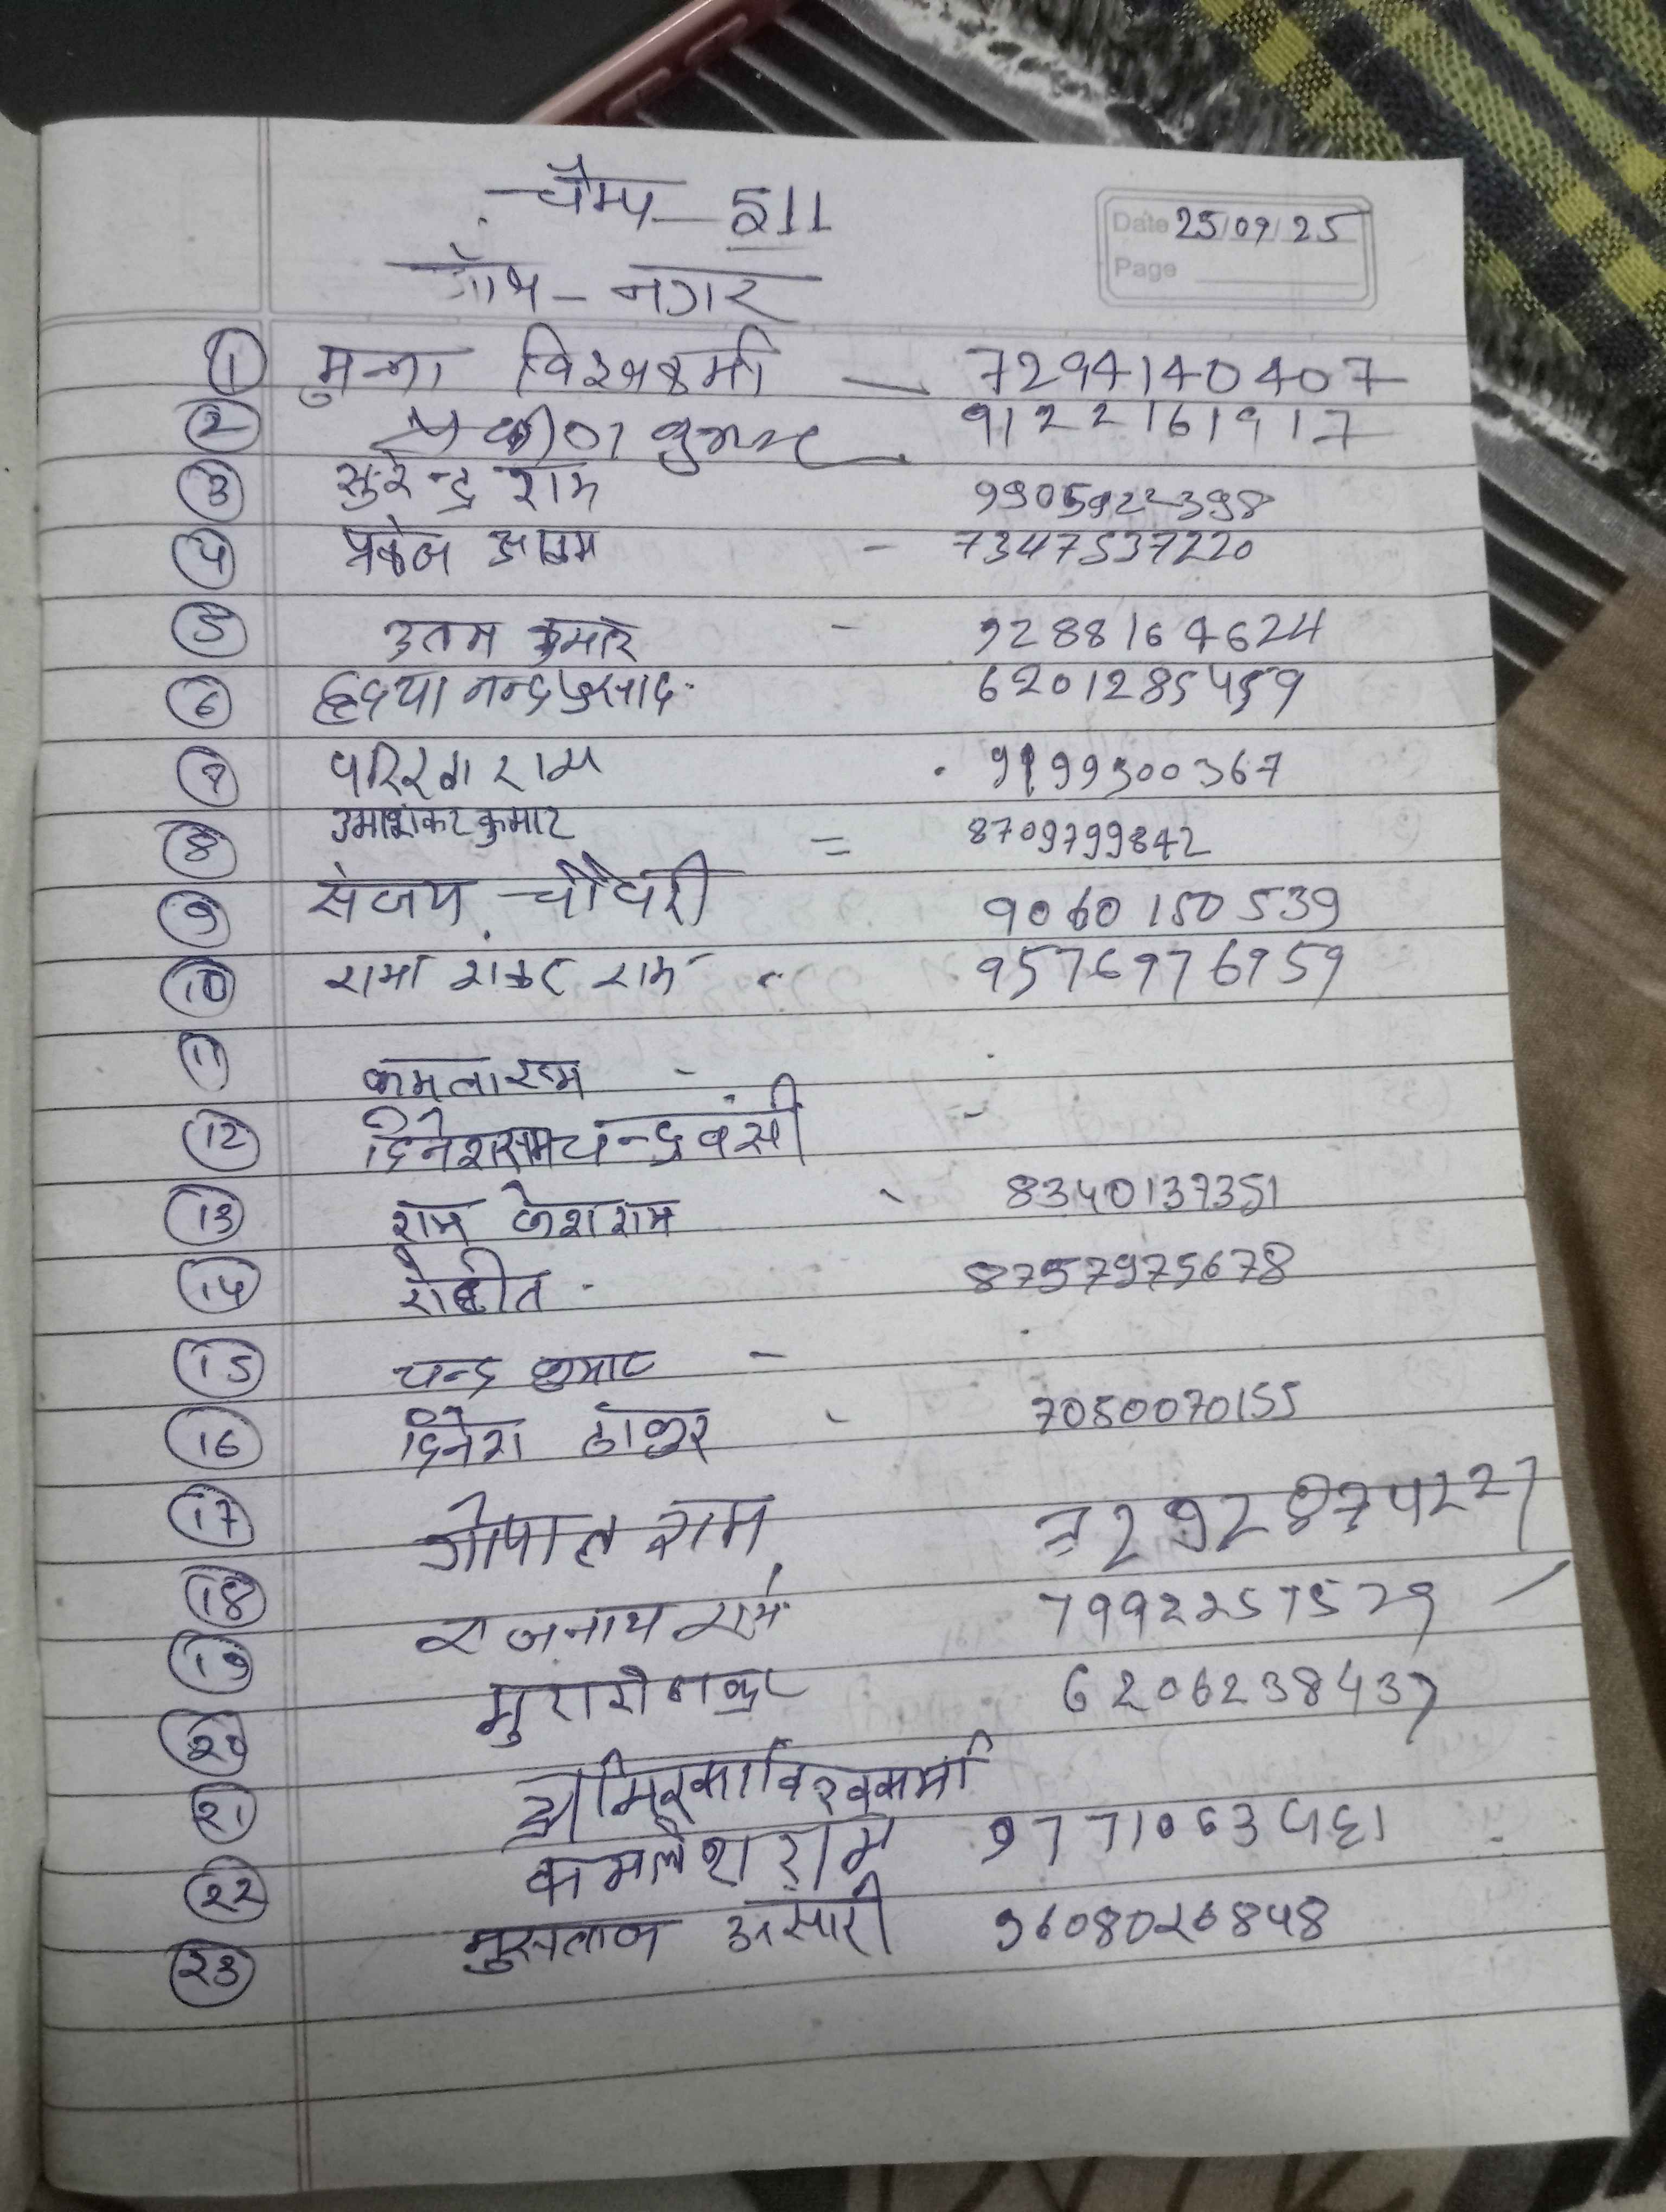 चैम्प - 511
Date 25/09/25
Page
ग्राम - नगर
1 मुन्ना विश्वकर्मा - 7294140407
2 प्रवीण कुमार 9122161917
3 सुरेन्द्र राम 9905922398
4 आलम - 7347537220
5 उतम कुमार - 9288164624
6 हृदया नन्द प्रसाद 6201285459
7 राम 9199300367
8 उमाशंकर कुमार = 8709799842
9 संजय चौधरी 9060150539
10 रामा शंकर राम 9576976959
11 कमला राम -
12 दिनेश राम चन्द्रवंसी -
13 राम केश राम - 8340137351
14 रोहीत - 8757975678
15 चन्द्र कुमार -
16 दिनेश ठाकुर - 7050070155
17 गोपाल राम 7292874227
18 राजनाथ राम 7992257529
19 6206238437
20
21 विश्वकर्मा
22 कमलेश राम 9771063५६1
23 अंसारी 9608026848